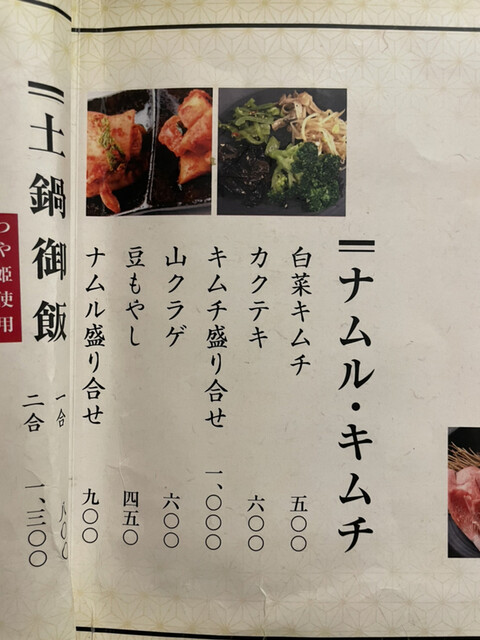 ナムル・キムチ
白菜キムチ 五〇〇
カクテキ 六〇〇
キムチ盛り合せ 一、〇〇〇
山クラゲ 六〇〇
豆もやし 四五〇
ナムル盛り合せ 九〇〇
土鍋御飯
つや姫使用
一合 八〇〇
二合 一、三〇〇